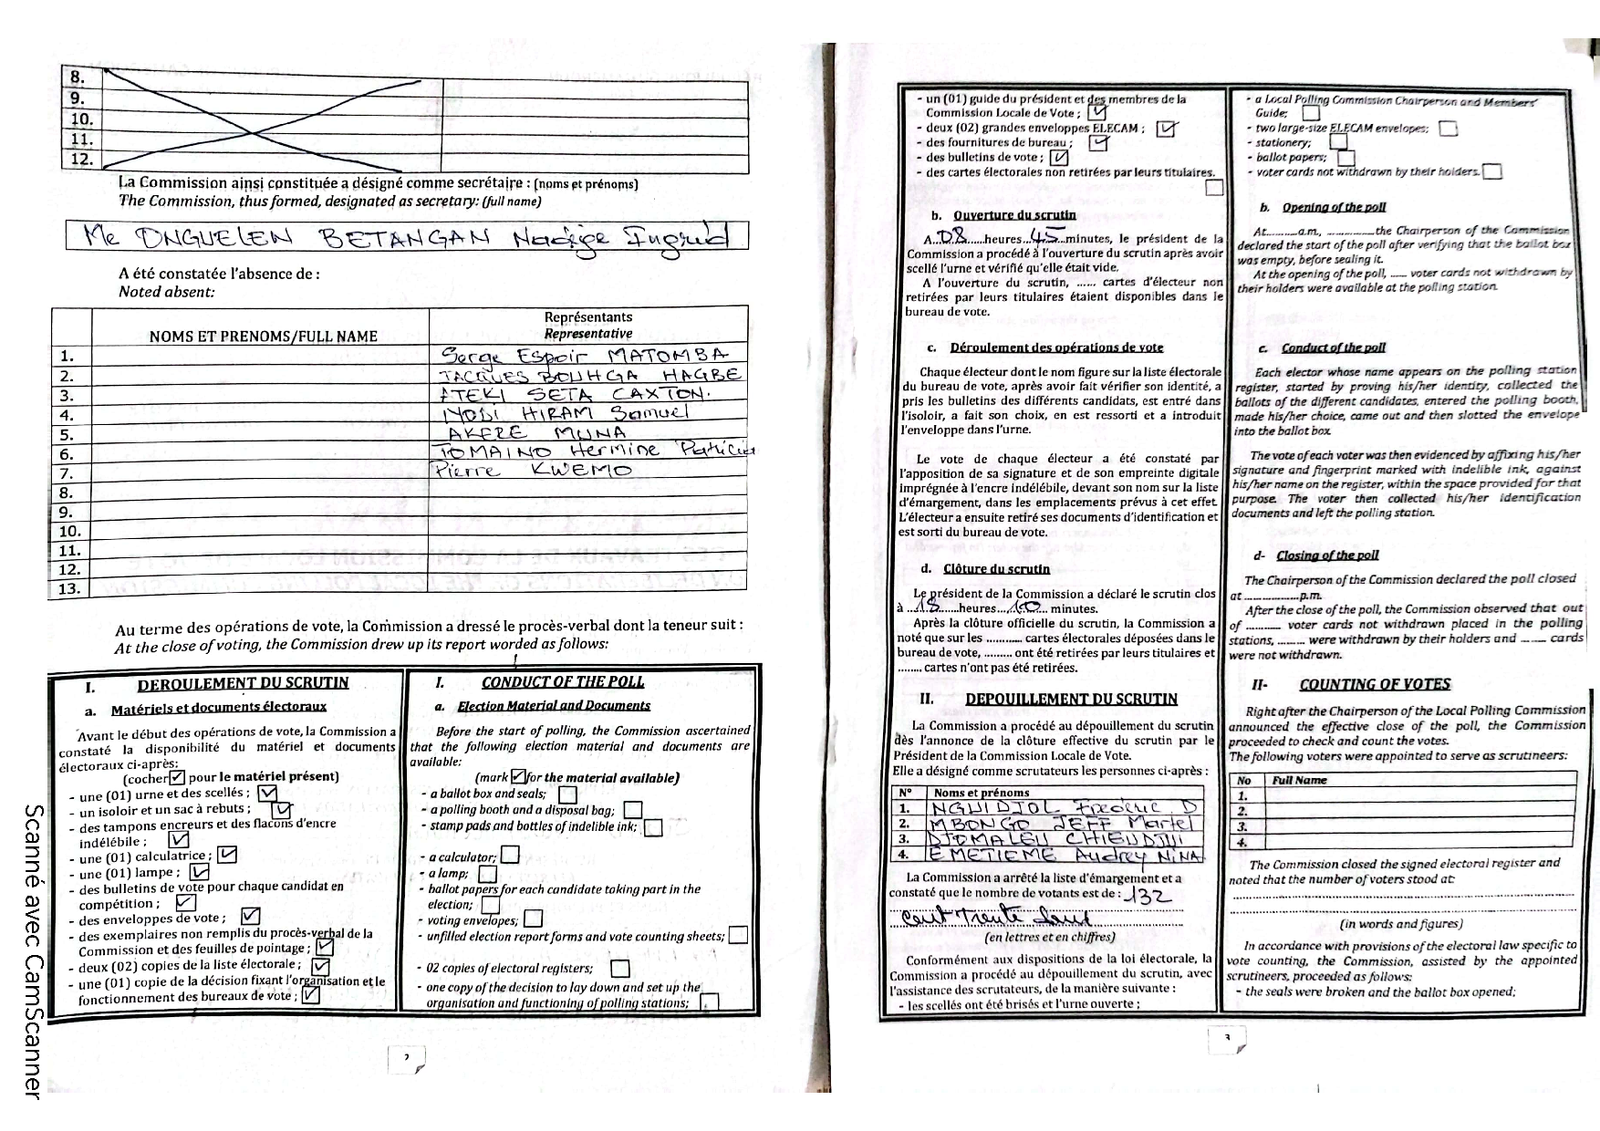 8.
9.
10.
11.
12.
La Commission ainsi constituée a désigné comme secrétaire : (noms et prénoms)
The Commission, thus formed, designated as secretary: (full name)
Me ONGUELEN BETANGAN Nadège Ingrid
A été constatée l'absence de :
Noted absent:
NOMS ET PRENOMS/FULL NAME
Représentants
Representative
1. Serge Espoir MATOMBA
2. JACQUES BOUHGA HAGBE
3. ATEKI SETA CAXTON.
4. NDBI HIRAM Samuel
5. AKERE MUNA
6. TOMAINO Hermine Patricia
7. Pierre KWEMO
8.
9.
10.
11.
12.
13.
Au terme des opérations de vote, la Commission a dressé le procès-verbal dont la teneur suit :
At the close of voting, the Commission drew up its report worded as follows:
I. DEROULEMENT DU SCRUTIN
a. Matériels et documents électoraux
Avant le début des opérations de vote, la Commission a
constaté la disponibilité du matériel et documents
électoraux ci-après:
(cocher ☑ pour le matériel présent)
- une (01) urne et des scellés ; ☑
- un isoloir et un sac à rebuts ; ☑
- des tampons encreurs et des flacons d'encre
indélébile ; ☑
- une (01) calculatrice ; ☑
- une (01) lampe ; ☑
- des bulletins de vote pour chaque candidat en
compétition ; ☑
- des enveloppes de vote ; ☑
- des exemplaires non remplis du procès-verbal de la
Commission et des feuilles de pointage ; ☑
- deux (02) copies de la liste électorale ; ☑
- une (01) copie de la décision fixant l'organisation et le
fonctionnement des bureaux de vote ; ☑
I. CONDUCT OF THE POLL
a. Election Material and Documents
Before the start of polling, the Commission ascertained
that the following election material and documents are
available:
(mark ☑ for the material available)
- a ballot box and seals; ☐
- a polling booth and a disposal bag; ☐
- stamp pads and bottles of indelible ink; ☐
- a calculator; ☐
- a lamp; ☐
- ballot papers for each candidate taking part in the
election; ☐
- voting envelopes; ☐
- unfilled election report forms and vote counting sheets; ☐
- 02 copies of electoral registers; ☐
- one copy of the decision to lay down and set up the
organisation and functioning of polling stations; ☐
2
Scanné avec CamScanner
- un (01) guide du président et des membres de la
Commission Locale de Vote ; ☑
- deux (02) grandes enveloppes ELECAM ; ☑
- des fournitures de bureau ; ☑
- des bulletins de vote ; ☑
- des cartes électorales non retirées par leurs titulaires.
☐
b. Ouverture du scrutin
A..08......heures...45...minutes, le président de la
Commission a procédé à l'ouverture du scrutin après avoir
scellé l'urne et vérifié qu'elle était vide.
A l'ouverture du scrutin, ...... cartes d'électeur non
retirées par leurs titulaires étaient disponibles dans le
bureau de vote.
c. Déroulement des opérations de vote
Chaque électeur dont le nom figure sur la liste électorale
du bureau de vote, après avoir fait vérifier son identité, a
pris les bulletins des différents candidats, est entré dans
l'isoloir, a fait son choix, en est ressorti et a introduit
l'enveloppe dans l'urne.
Le vote de chaque électeur a été constaté par
l'apposition de sa signature et de son empreinte digitale
imprégnée à l'encre indélébile, devant son nom sur la liste
d'émargement, dans les emplacements prévus à cet effet.
L'électeur a ensuite retiré ses documents d'identification et
est sorti du bureau de vote.
d. Clôture du scrutin
Le président de la Commission a déclaré le scrutin clos
à ...18......heures...10... minutes.
Après la clôture officielle du scrutin, la Commission a
noté que sur les ........... cartes électorales déposées dans le
bureau de vote, ......... ont été retirées par leurs titulaires et
........ cartes n'ont pas été retirées.
II. DEPOUILLEMENT DU SCRUTIN
La Commission a procédé au dépouillement du scrutin
dès l'annonce de la clôture effective du scrutin par le
Président de la Commission Locale de Vote.
Elle a désigné comme scrutateurs les personnes ci-après :
N° Noms et prénoms
1. NGUIDJOL Frédéric D
2. MBONGO JEFF Martel
3. DJOMALEU CHIENDJUI
4. EMETIEME Audrey NINA
La Commission a arrêté la liste d'émargement et a
constaté que le nombre de votants est de : 132
Cent Trente deux
(en lettres et en chiffres)
Conformément aux dispositions de la loi électorale, la
Commission a procédé au dépouillement du scrutin, avec
l'assistance des scrutateurs, de la manière suivante :
- les scellés ont été brisés et l'urne ouverte ;
- a Local Polling Commission Chairperson and Members'
Guide; ☐
- two large-size ELECAM envelopes; ☐
- stationery; ☐
- ballot papers; ☐
- voter cards not withdrawn by their holders. ☐
b. Opening of the poll
At..........a.m, ............... the Chairperson of the Commission
declared the start of the poll after verifying that the ballot box
was empty, before sealing it.
At the opening of the poll, ...... voter cards not withdrawn by
their holders were available at the polling station.
c. Conduct of the poll
Each elector whose name appears on the polling station
register, started by proving his/her identity, collected the
ballots of the different candidates, entered the polling booth,
made his/her choice, came out and then slotted the envelope
into the ballot box.
The vote of each voter was then evidenced by affixing his/her
signature and fingerprint marked with indelible ink, against
his/her name on the register, within the space provided for that
purpose. The voter then collected his/her identification
documents and left the polling station.
d- Closing of the poll
The Chairperson of the Commission declared the poll closed
at ...................p.m.
After the close of the poll, the Commission observed that out
of .......... voter cards not withdrawn placed in the polling
stations, ........ were withdrawn by their holders and ........ cards
were not withdrawn.
II- COUNTING OF VOTES
Right after the Chairperson of the Local Polling Commission
announced the effective close of the poll, the Commission
proceeded to check and count the votes.
The following voters were appointed to serve as scrutineers:
No Full Name
1.
2.
3.
4.
The Commission closed the signed electoral register and
noted that the number of voters stood at:
(in words and figures)
In accordance with provisions of the electoral law specific to
vote counting, the Commission, assisted by the appointed
scrutineers, proceeded as follows:
- the seals were broken and the ballot box opened;
3